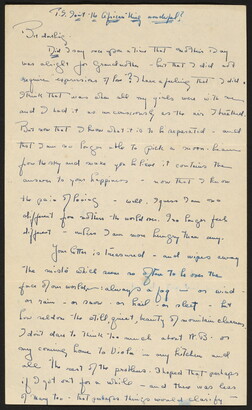 P.S. Isn't the African thing wonderful!
darling
Did I say one time that Mother's Day
was alright for Grandmother - but that I did not
require expressions of love? I have a feeling that I did.
I think that was when all my girls were with me
and I had it as unconsciously as the air I breathed.
But now that I know what it is to be separated - and
that I am no longer able to pick a moon-beam
from the sky and make you believe it contains the
answer to your happiness - now that I know
the pain of losing - well, I guess I am no
different from mothers the world over. I no longer feel
different - unless I am more hungry than any.
Your letter is treasured - and wipes away
the mist which seems so often to be over the
face of our world - always a fog - or wind -
or rain - or snow - or hail - or sleet - but
how seldom the still, quiet, beauty of mountain clearness.
I don't dare to think too much about W.B. - or
my coming home to Viola - my kitchen and
all the rest of the problems. I hoped that perhaps
if I got out for a while - and there was less
of any too - that perhaps things would clarify -